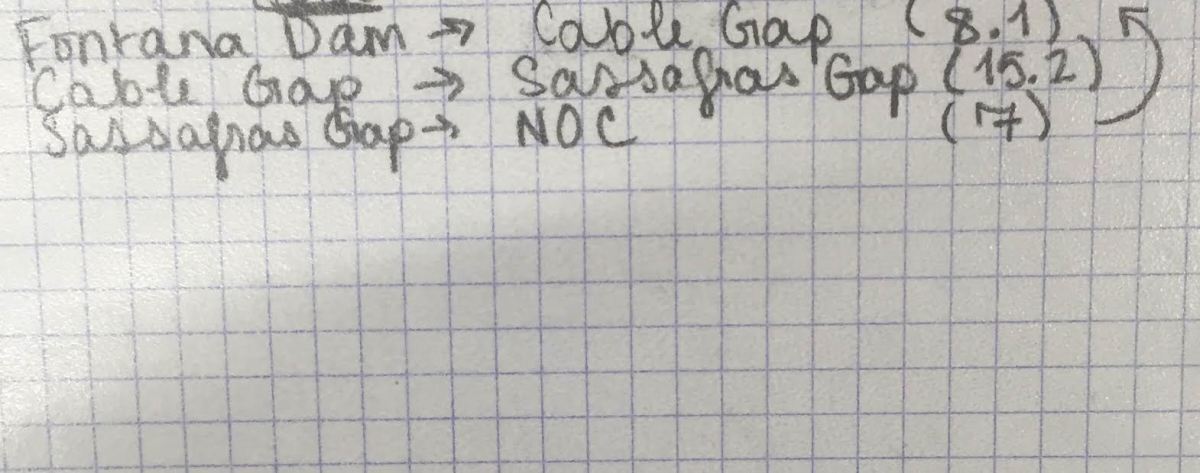 Fontana Dam → Cable Gap (8.1)
Cable Gap → Sassafras Gap (15.2)
Sassafras Gap → NOC (7)